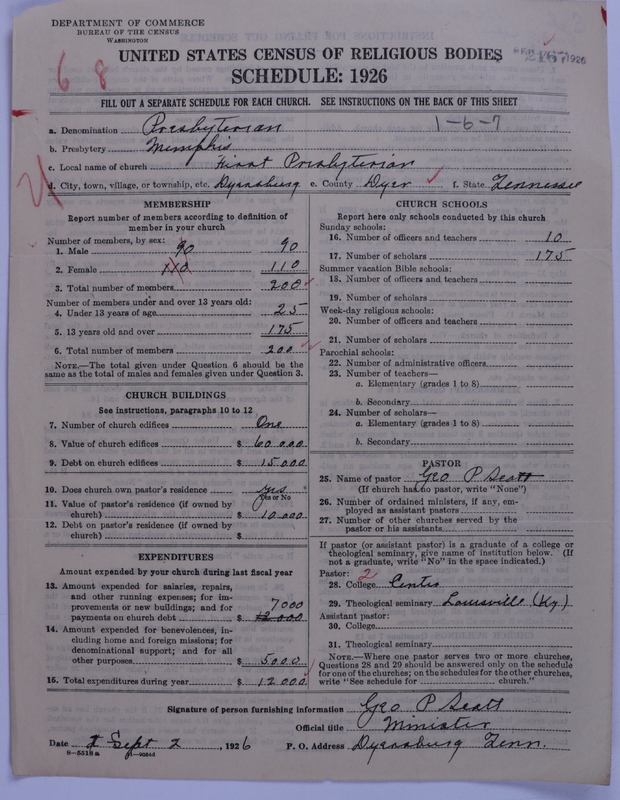 DEPARTMENT OF COMMERCE
BUREAU OF THE CENSUS
WASHINGTON
UNITED STATES CENSUS OF RELIGIOUS BODIES
SCHEDULE: 1926
6 8
FILL OUT A SEPARATE SCHEDULE FOR EACH CHURCH. SEE INSTRUCTIONS ON THE BACK OF THIS SHEET
a. Denomination Presbyterian 1-6-7
b. Presbytery Memphis
c. Local name of church First Presbyterian
d. City, town, village, or township, etc. Dyersburg e. County Dyer f. State Tennessee
MEMBERSHIP
Report number of members according to definition of
member in your church
Number of members, by sex:
1. Male 90 90
2. Female 110 110
3. Total number of members 200
Number of members under and over 13 years old:
4. Under 13 years of age 25
5. 13 years old and over 175
6. Total number of members 200
NOTE.—The total given under Question 6 should be
same as the total of males and females given under Question 3.
CHURCH BUILDINGS
See instructions, paragraphs 10 to 12
7. Number of church edifices One
8. Value of church edifices $ 60.000
9. Debt on church edifices $ 15.000
10. Does church own pastor's residence yes
Yes or No
11. Value of pastor's residence (if owned by
church) $ 10.000
12. Debt on pastor's residence (if owned by
church) $
EXPENDITURES
Amount expended by your church during last fiscal year
13. Amount expended for salaries, repairs,
and other running expenses; for im-
provements or new buildings; and for 7000
payments on church debt $ 12.000
14. Amount expended for benevolences, in-
cluding home and foreign missions; for
denominational support; and for all
other purposes $ 5000
15. Total expenditures during year $ 12000
CHURCH SCHOOLS
Report here only schools conducted by this church
Sunday schools:
16. Number of officers and teachers 10
17. Number of scholars 175
Summer vacation Bible schools:
18. Number of officers and teachers
19. Number of scholars
Week-day religious schools:
20. Number of officers and teachers
21. Number of scholars
Parochial schools:
22. Number of administrative officers
23. Number of teachers—
a. Elementary (grades 1 to 8)
b. Secondary
24. Number of scholars—
a. Elementary (grades 1 to 8)
b. Secondary
PASTOR
25. Name of pastor Geo P Scott
(If church has no pastor, write "None")
26. Number of ordained ministers, if any, em-
ployed as assistant pastors
27. Number of other churches served by the
pastor or his assistants
If pastor (or assistant pastor) is a graduate of a college or
theological seminary, give name of institution below. (If
not a graduate, write "No" in the space indicated.)
Pastor: 2
28. College Centre
29. Theological seminary Louisville (Ky)
Assistant pastor:
30. College
31. Theological seminary
NOTE.—Where one pastor serves two or more churches,
Questions 28 and 29 should be answered only on the schedule
for one of the churches; on the schedules for the other churches,
write "See schedule for ........ church."
Signature of person furnishing information Geo P Scott
Official title Minister
Date Sept 2, 1926 P. O. Address Dyersburg Tenn.
8-5518a